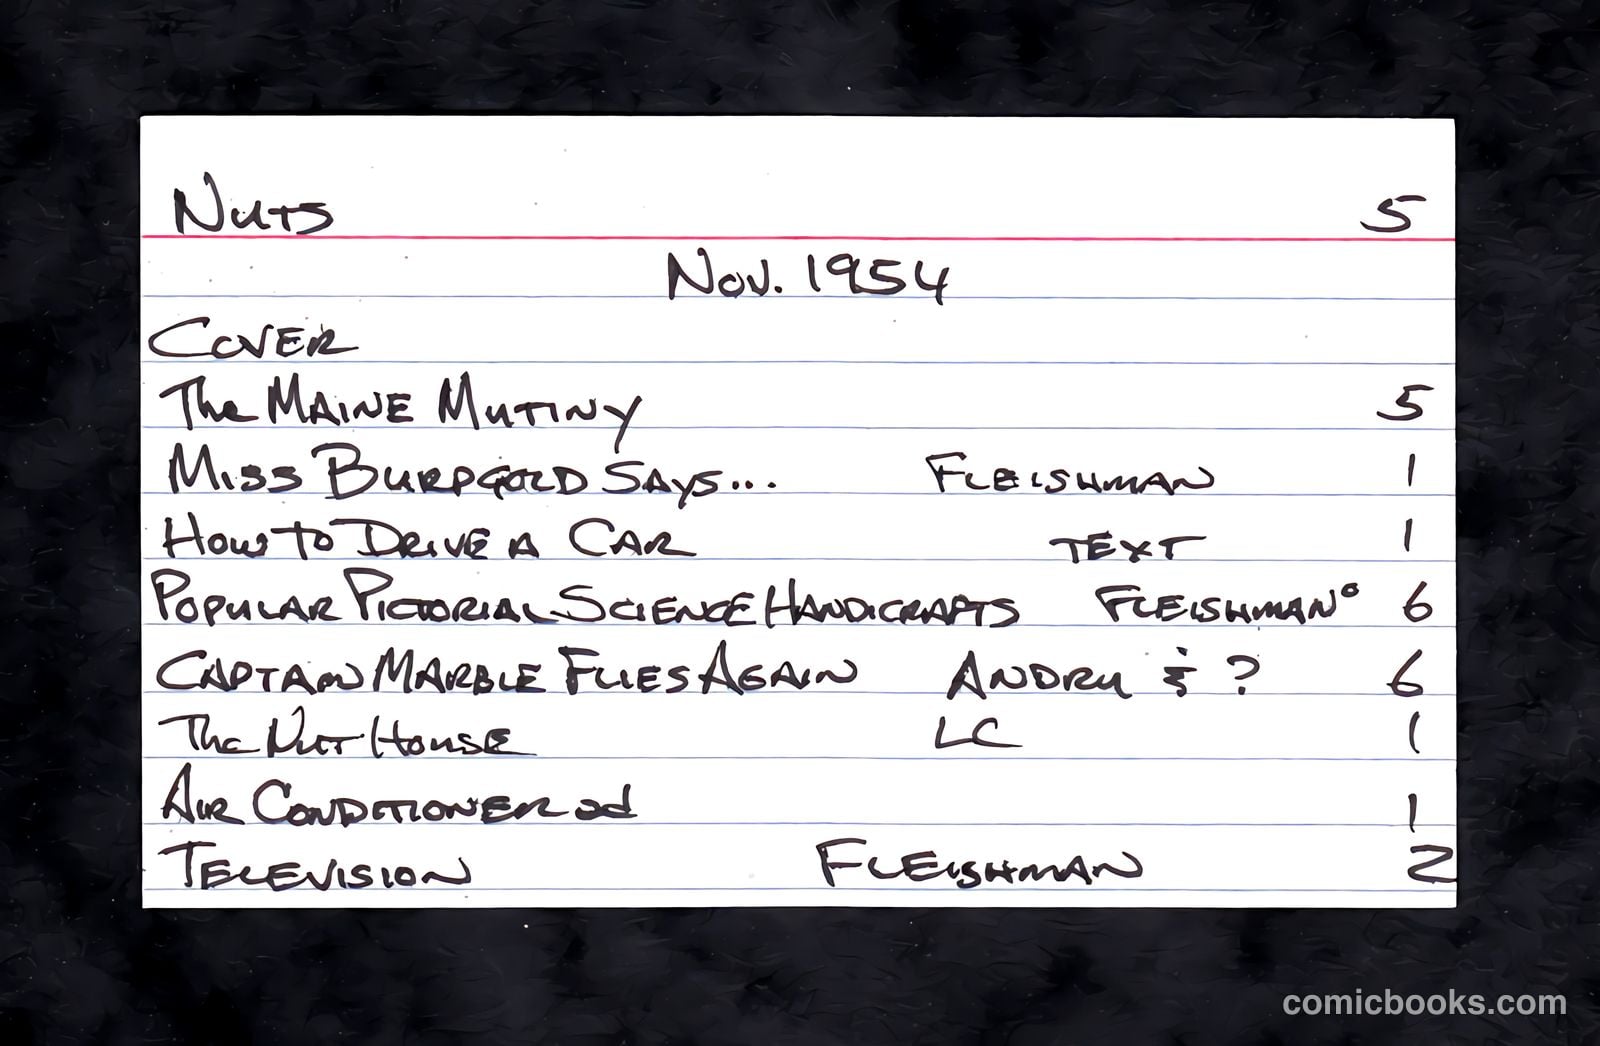 Nuts 5
Nov. 1954
Cover
The Maine Mutiny 5
Miss Burpgold Says... Fleishman 1
How to Drive a Car text 1
Popular Pictorial Science Handicrafts Fleishman° 6
Captain Marble Flies Again Andru & ? 6
The Nut House LC 1
Air Conditioner ad 1
Television Fleishman 2
comicbooks.com